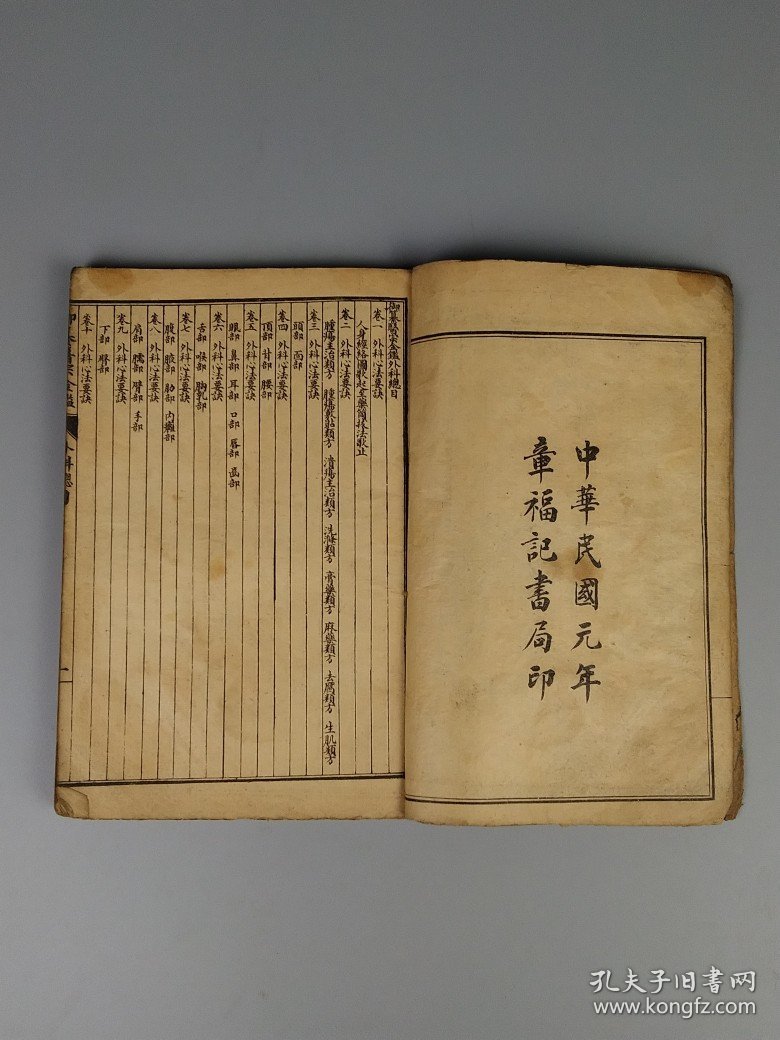 中華民國元年
章福記書局印
御纂醫宗金鑑外科總目
卷一 外科心法要訣
卷二 外科心法要訣
腫瘍主治類方 腫瘍敷貼類方 潰瘍主治類方 洗滌類方 膏藥類方 麻藥類方 去腐類方 生肌類方
卷三 外科心法要訣
頭部 面部
卷四 外科心法要訣
項部 背部 腰部
卷五 外科心法要訣
眼部 鼻部 耳部 口部 唇部 齒部
卷六 外科心法要訣
舌部 喉部 胸乳部
卷七 外科心法要訣
腹部 腋部 肋部 內癰部
卷八 外科心法要訣
肩部 臑部 臂部 手部
卷九 外科心法要訣
下部 臀部
卷十 外科心法要訣
孔夫子旧书网
www.kongfz.com